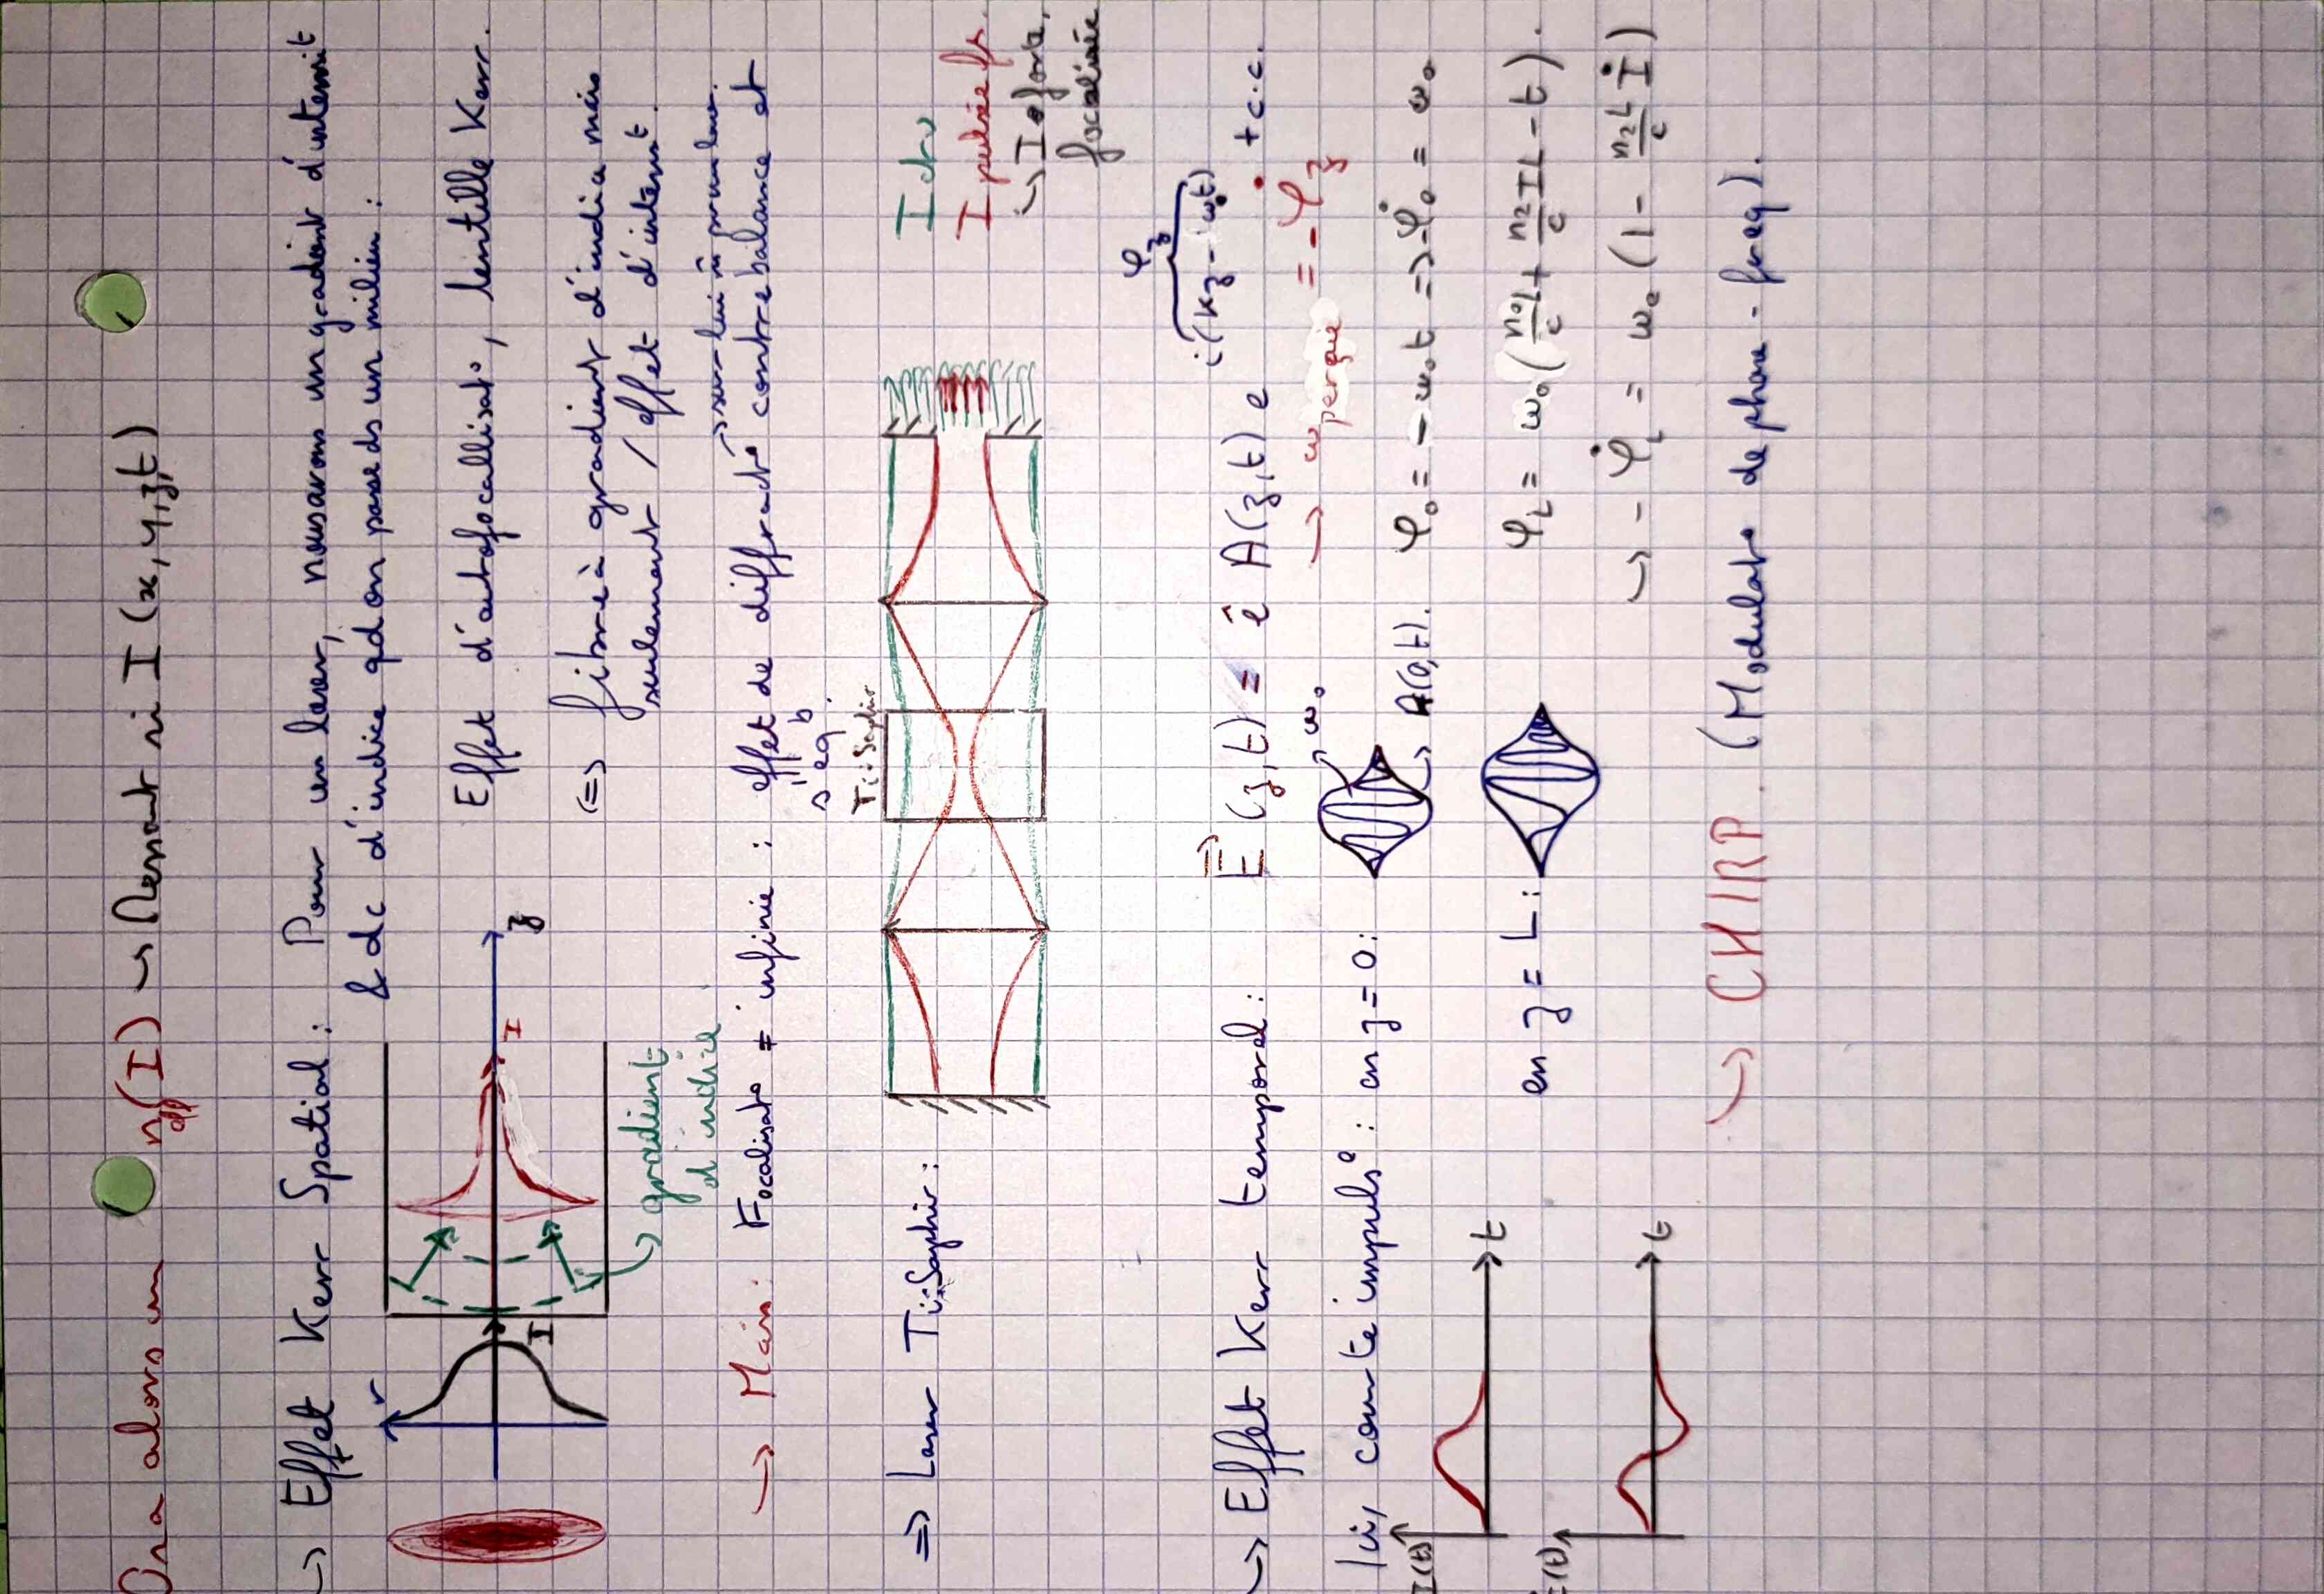 On a alors un n_eff(I) → Dessert si I(x,y,z,t)
→ Effet Kerr Spatial : Pour un laser, nous avons un gradient d'intensit°
& dc d'indice qd on passe ds un milieu :
r
z
I
I
→ gradient d'indice
Effet d'autofocallisat°, lentille Kerr.
(=> fibre à gradient d'indice mais
seulement / effet d'intensit°.
→ Mais : Focalisat° ≠ infinie : effet de diffract° contrebalance et
s'eq
=> Laser Ti:Saphir :
Ti:Saphir
I
I pulsée
→ I forte, focalisée
→ Effet Kerr temporel : E⃗(z,t) = ê A(z,t) e^{i(kz - ω₀t)} + c.c.
φ_z
→ ω perçue = -φ̇_z
Ici, courte impuls° : en z = 0 :
ω₀
A(0,t).
φ₀ = - ω₀t => -φ̇₀ = ω₀
I(t)
t
en z = L :
φ_L = ω₀(n₀L/c + n₂IL/c - t).
→ - φ̇_L = ω₀(1 - n₂L/c İ)
İ(t)
t
→ CHIRP. (Modulat° de phase - freq).